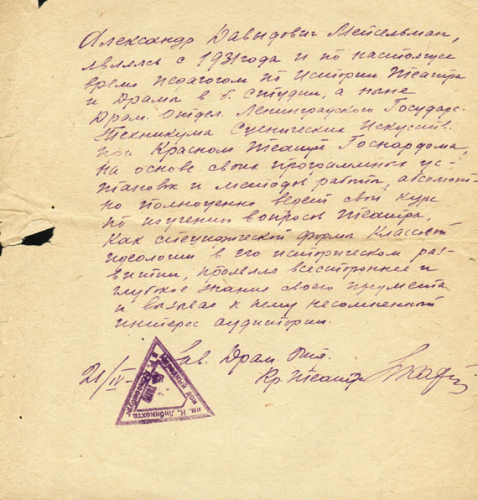 Александр Давыдович Мейсельман,
являясь с 1931 года и по настоящее
время педагогом по истории Театра
и Драмы в б. студии, а ныне
Драм. отдел. Ленинградского Государс-
Техникума Сценических Искусств
при Красном Театре Госнардома,
на основе своих программных ус-
тановок и методов работы, абсолют-
но полноценно ведет свой курс
по изучению вопросов театра,
как специфической формы классовой
идеологии в его историческом раз-
витии, проявляя всестороннее и
глубокое знание своего предмета
и вызывая к нему несомненный
интерес аудитории.
Зав. Драм. Отд.
21/IV- Кр. Театр
им. К. Либкнехта